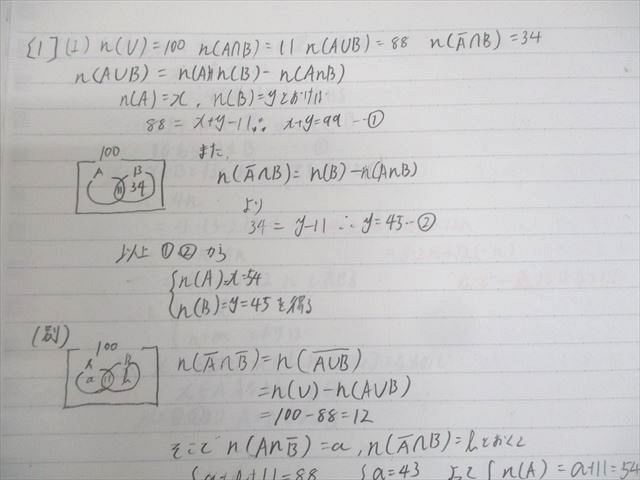 [1](1) n(U)=100 n(A∩B)=11 n(A∪B)=88 n(A̅∩B)=34
n(A∪B)= n(A)+n(B)- n(A∩B)
n(A)=x, n(B)=yとおけば
88= x+y-11∴ x+y=99 …①
また,
n(A̅∩B)= n(B)-n(A∩B)
より
34= y-11 ∴ y=45…②
100
A B
11 34
以上 ①② から
{n(A)=x=54
{n(B)=y=45を得る
(別)
100
A B
a 11 b
n(A̅∩B̅)= n(A̅∪̅B̅)
=n(U)-n(A∪B)
=100-88=12
そこで n(A∩B̅)=a, n(A̅∩B)=bとおくと
{a+b+11=88 {a=43 よって{n(A)=a+11=54